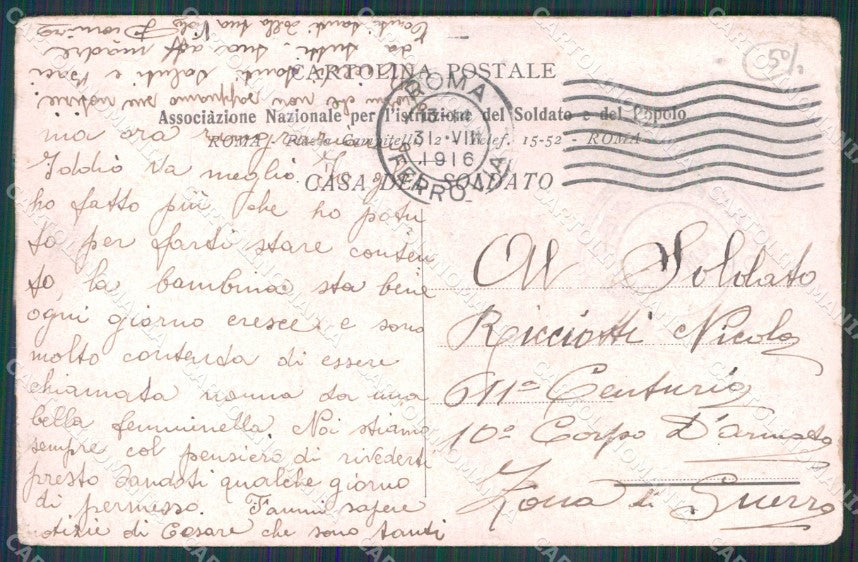 CARTOLINA POSTALE
Associazione Nazionale per l'istruzione del Soldato e del Popolo
ROMA - Piazza Campitelli, 2 - Telef. 15-52 - ROMA
CASA DEL SOLDATO
ROMA
31 VII
1916
FERROVIA
50/
ma ora
Iddio va meglio. Io
ho fatto più che ho potu
to per farti stare conten
to, la bambina sta bene
ogni giorno cresce e sono
molto contenda di essere
chiamata nonna da una
bella femminella Noi stiamo
sempre col pensiero di rivederti
presto dandoti qualche giorno
di permesso. Fammi sapere
notizie di Cesare che sono tanti
giorni che non sappiamo sue notizie
tanti saluti e baci
da tutti, tua aff madre
tanti della tua
Al Soldato
Ricciotti Nicola
611a Centuria
10o Corpo D'armata
Zona di Guerra
CARTOLINOMANIA